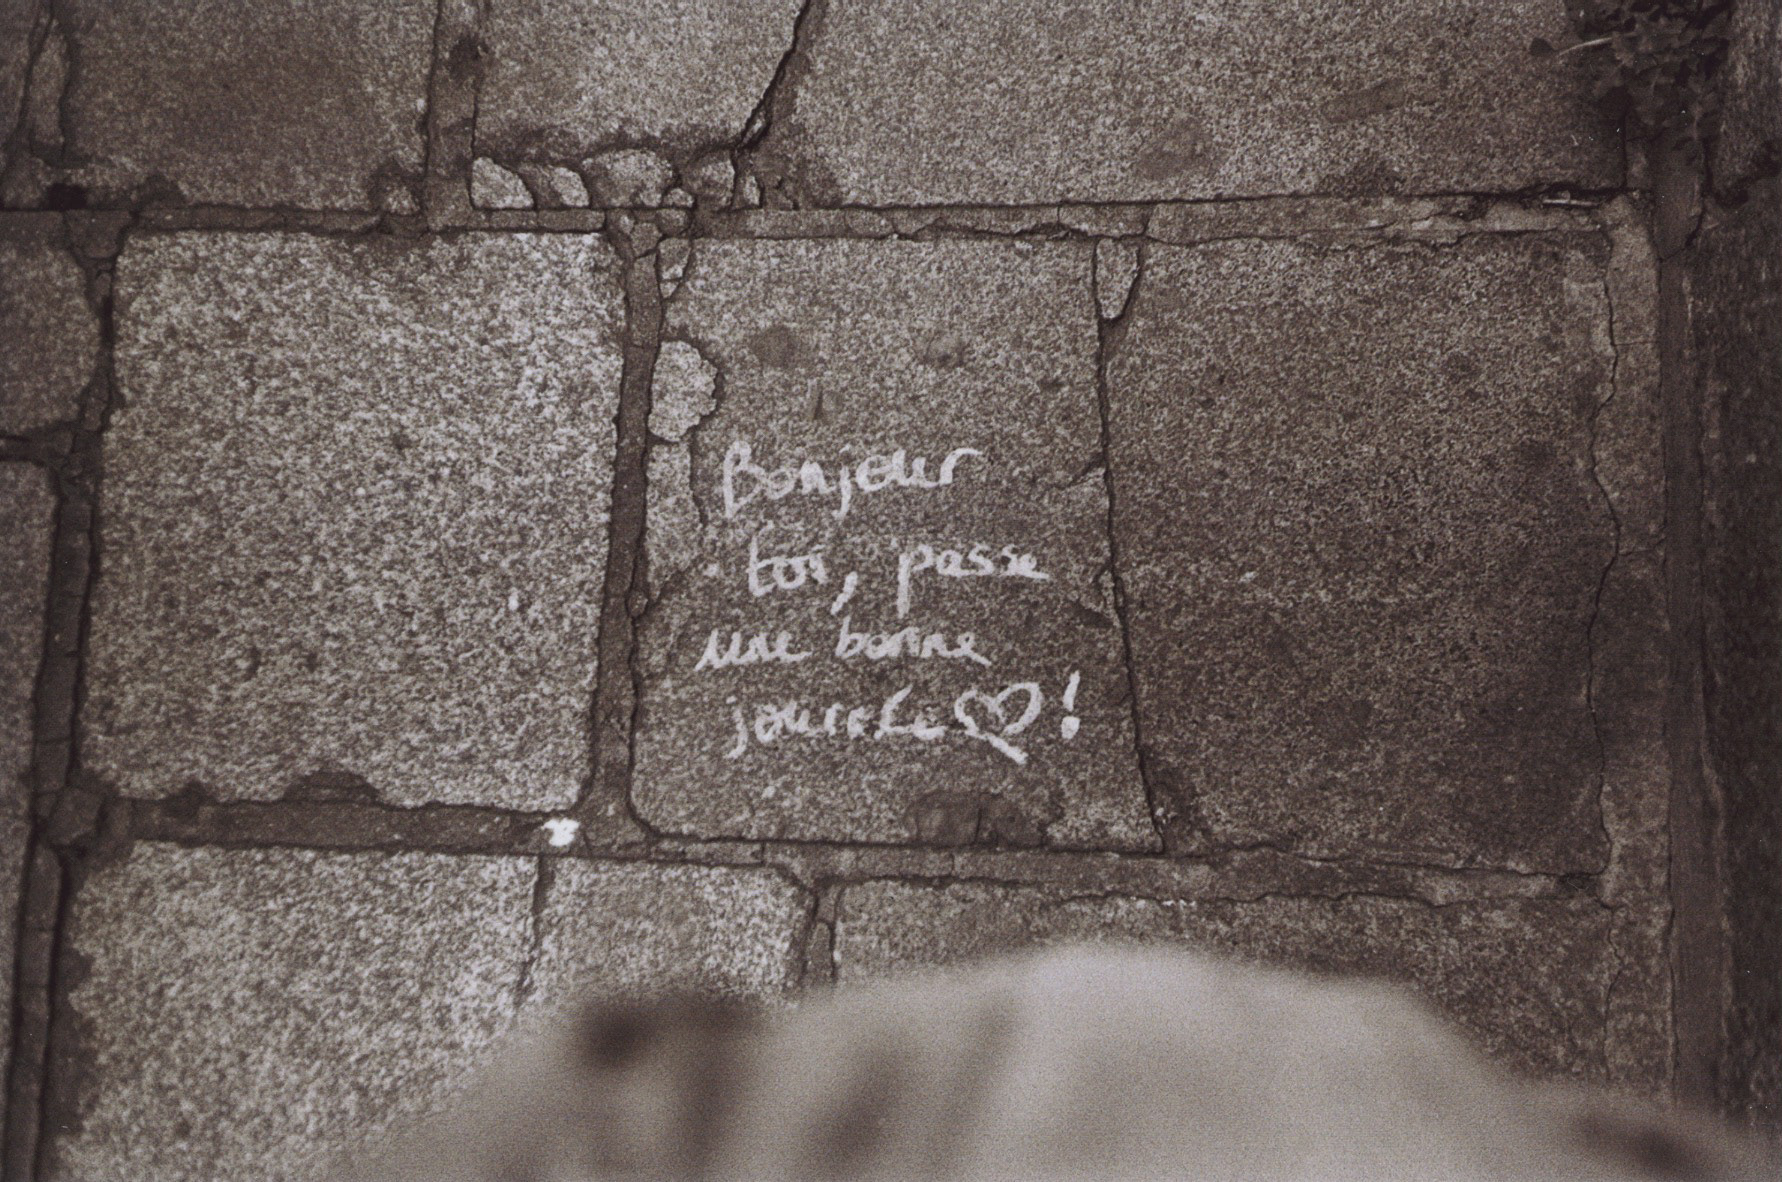 Bonjour
toi, passe
une bonne
journée ♡!